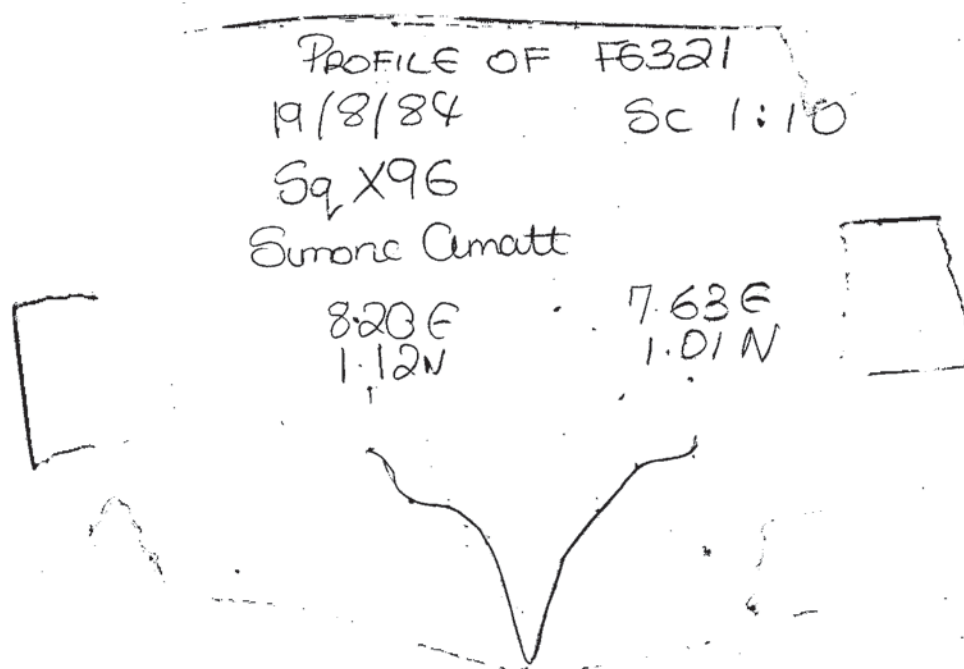 PROFILE OF F6321
19/8/84 Sc 1:10
Sq X96
Simone Amatt
8.20 E 7.63 E
1.12 N 1.01 N